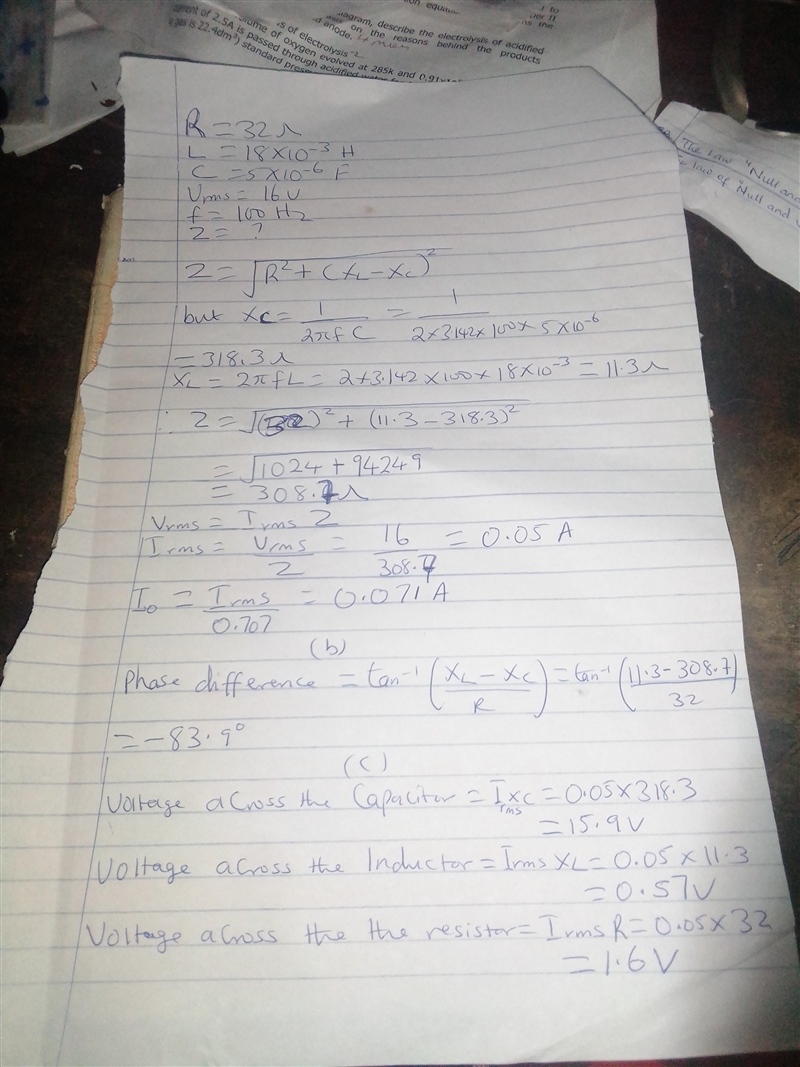 agram, describe the electrolysis of acidified
on the reasons behind the products
anode.
s of electrolysis
ent of 2.5A is passed through acidified
ume of oxygen evolved at 285k and 0.91
gas is 22.4dm³) standard pres
The law "Null and
law of "Null and
R = 32Ω
L = 18×10⁻³ H
C = 5×10⁻⁶ F
Vrms = 16V
f = 100 Hz
Z = ?
Z = √R² + (XL – Xc)²
but Xc = 1/2πfC = 1/2×3.142×100×5×10⁻⁶
= 318.3Ω
XL = 2πfL = 2×3.142×100×18×10⁻³ = 11.3Ω
∴ Z = √(32)² + (11.3 – 318.3)²
= √1024 + 94249
= 308.7Ω
Vrms = Irms Z
Irms = Vrms/Z = 16/308.7 = 0.05 A
I₀ = Irms/0.707 = 0.071 A
(b)
Phase difference = tan⁻¹ (XL – Xc/R) = tan⁻¹ (11.3 – 308.7/32)
= –83.9°
(c)
Voltage across the Capacitor = Irms Xc = 0.05×318.3
= 15.9V
Voltage across the Inductor = Irms XL = 0.05 × 11.3
= 0.57V
Voltage across the the resistor = Irms R = 0.05×32
= 1.6V